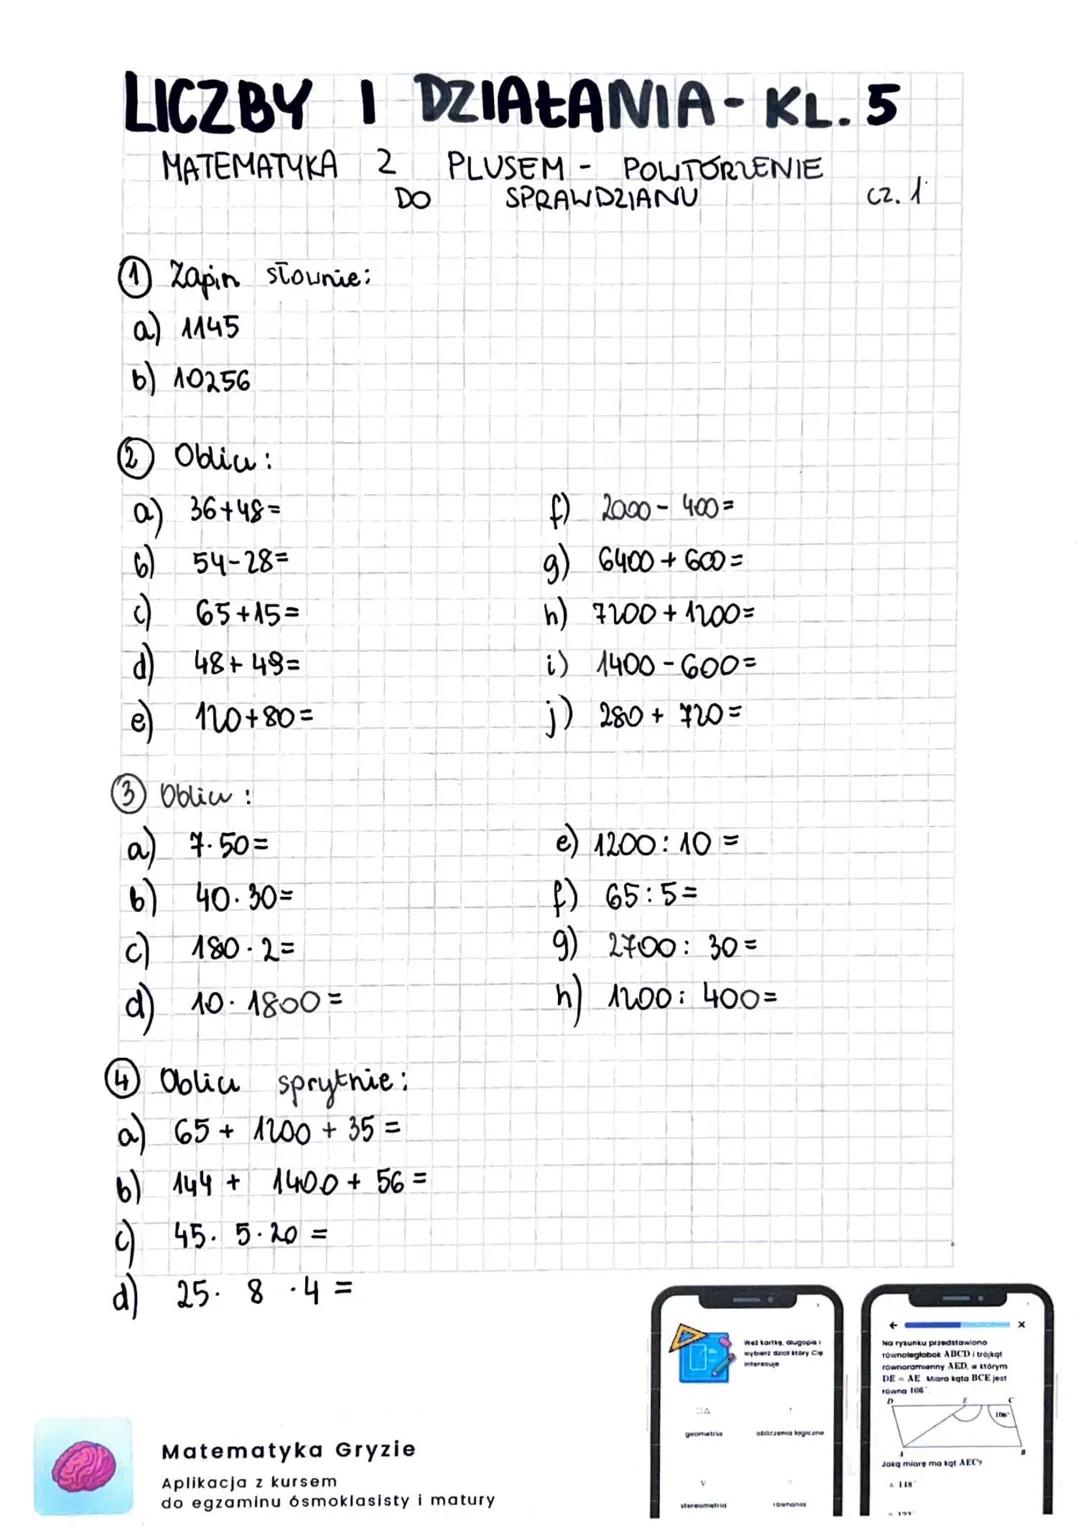 LICZBY I DZIAŁANIA - KL. 5
MATEMATYKA Z PLUSEM - POWTÓRZENIE
DO SPRAWDZIANU cz. 1
1 Zapisz słownie:
a) 1145
b) 10256
2 Oblicz:
a) 36+48=
b) 54-28=
c) 65+15=
d) 48+49=
e) 120+80=
f) 2000-400=
g) 6400+600=
h) 7200+1200=
i) 1400-600=
j) 280+720=
3 Oblicz:
a) 7·50=
b) 40·30=
c) 180·2=
d) 10·1800=
e) 1200:10=
f) 65:5=
g) 2700:30=
h) 1200:400=
4 Oblicz sprytnie:
a) 65+1200+35=
b) 144+1400+56=
c) 45·5·20=
d) 25·8·4=
Matematyka Gryzie
Aplikacja z kursem
do egzaminu ósmoklasisty i matury
Weź kartkę, długopis i
wybierz dział który Cię
interesuje
geometria
obliczenia logiczne
stereometria
równania
Na rysunku przedstawiono
równoległobok ABCD i trójkąt
równoramienny AED, w którym
DE = AE Miara kąta BCE jest
równa 106°
D E C
106°
A B
Jaką miarę ma kąt AEC?